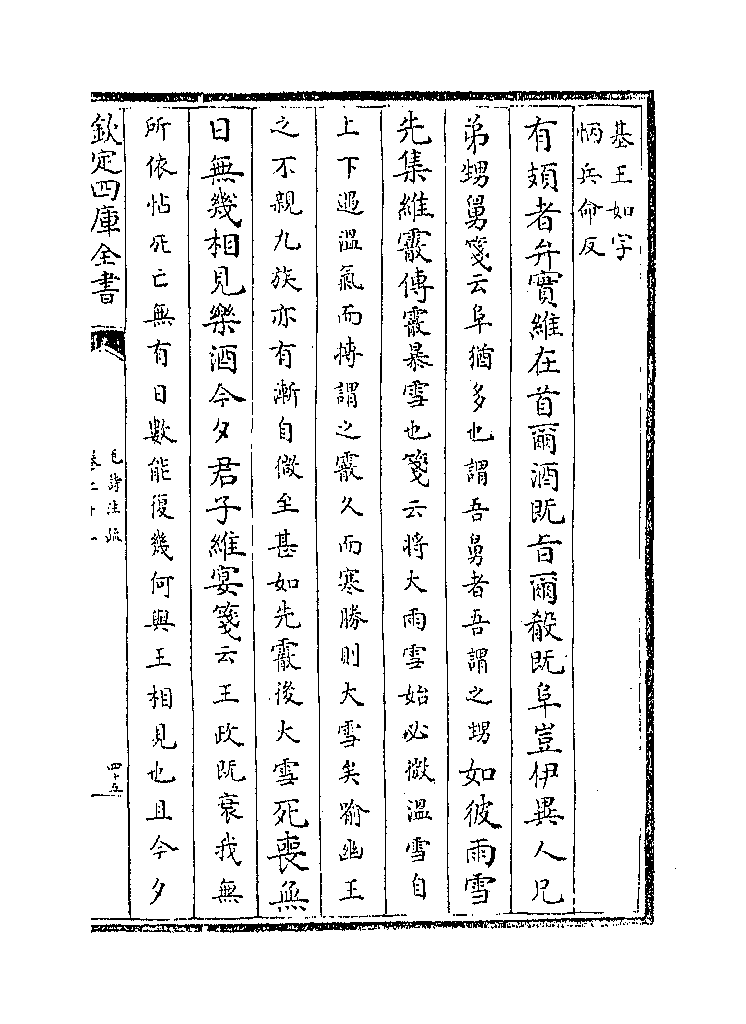 基王如字
怲兵命反
有頍者弁實維在首爾酒既旨爾殽既阜豈伊異人兄
弟甥舅箋云阜猶多也謂吾舅者吾謂之甥如彼雨雪
先集維霰傳霰暴雪也箋云將大雨雪始必微溫雪自
上下遇溫氣而摶謂之霰久而寒勝則大雪矣喻幽王
之不親九族亦有漸自微至甚如先霰後大雪死喪無
日無幾相見樂酒今夕君子維宴箋云王政既衰我無
所依怙死亡無有日數能復幾何與王相見也且今夕
欽定四庫全書
毛詩注疏
卷二十一
四十五